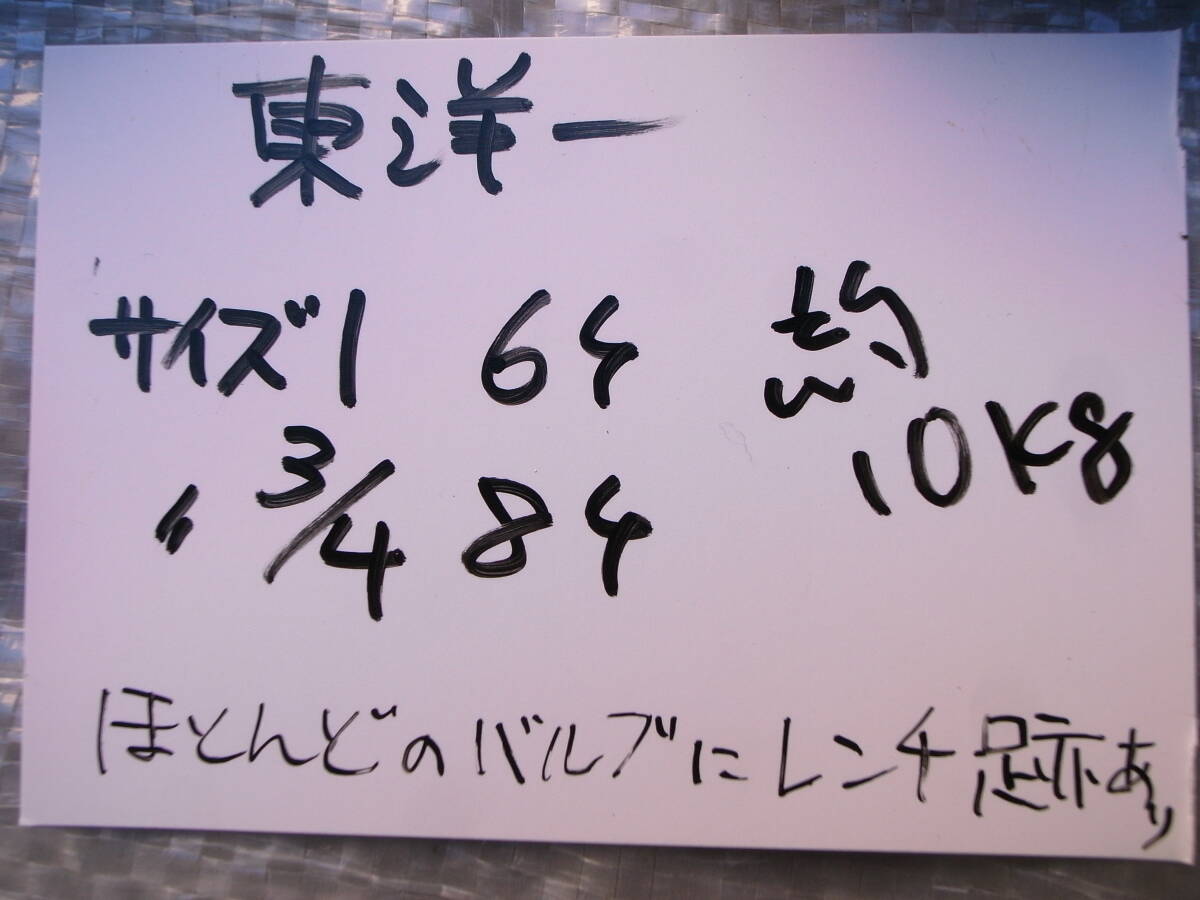 東洋ー
サイズ1 6ケ 約
10Kg
〃 3/4 8ケ
ほとんどのバルブにレンチ跡あり